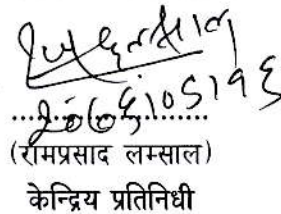 २०७६।०५।१६
(रामप्रसाद लम्साल)
केन्द्रिय प्रतिनिधी